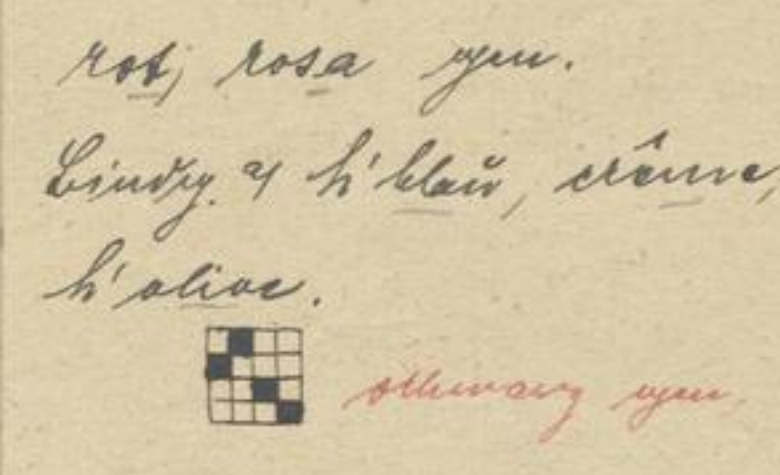 rot, rosa gem.
Bindg. h'blau, crême,
h'olive.